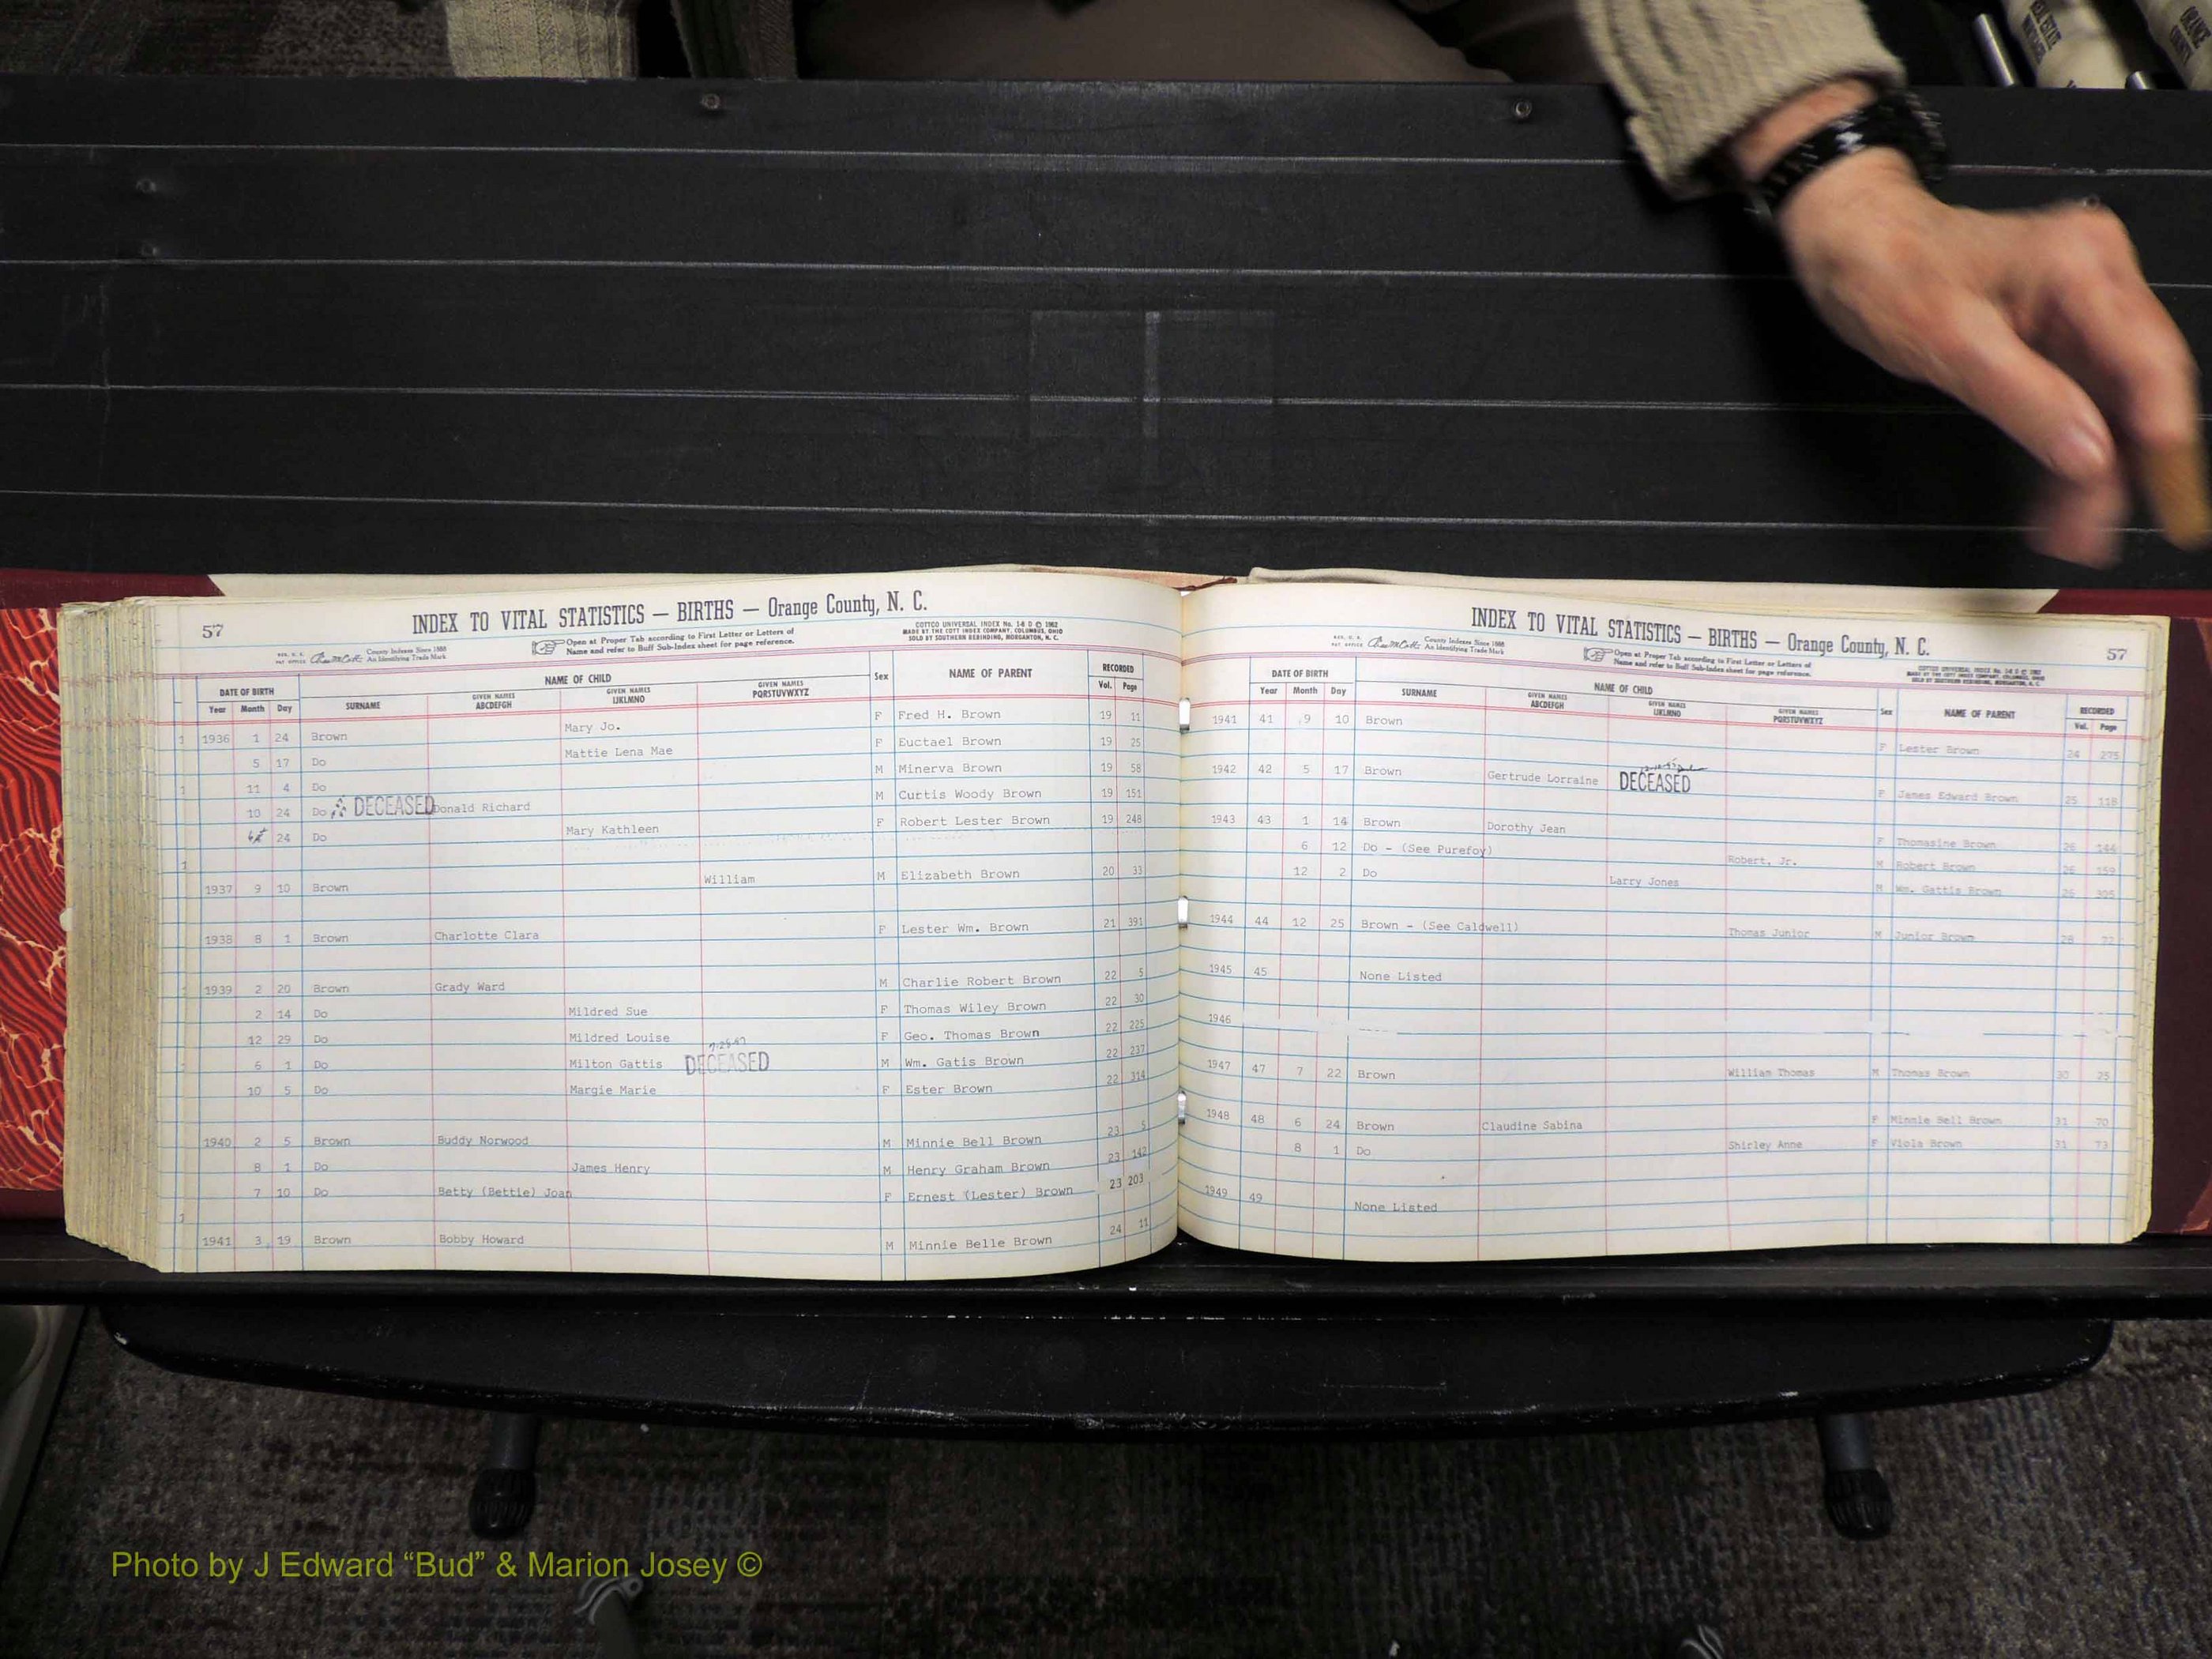 57
INDEX TO VITAL STATISTICS — BIRTHS — Orange County, N. C.
County Indexes Since 1888
An Identifying Trade Mark
Open at Proper Tab according to First Letter or Letters of
Name and refer to Buff Sub-Index sheet for page reference.
COTTCO UNIVERSAL INDEX No. 14 D © 1962
MADE BY THE COTT INDEX COMPANY, COLUMBUS, OHIO
SOLD BY SOUTHERN REBINDING, MORGANTON, N. C.
DATE OF BIRTH NAME OF CHILD Sex NAME OF PARENT RECORDED
Year Month Day SURNAME GIVEN NAMES ABCDEFGH GIVEN NAMES IJKLMNO GIVEN NAMES PQRSTUVWXYZ Vol. Page
1936 1 24 Brown Mary Jo. F Fred H. Brown 19 11
5 17 Do Mattie Lena Mae F Euctael Brown 19 25
11 4 Do M Minerva Brown 19 58
10 24 Do DECEASED Donald Richard M Curtis Woody Brown 19 151
24 Do Mary Kathleen F Robert Lester Brown 19 248
1937 9 10 Brown William M Elizabeth Brown 20 33
1938 8 1 Brown Charlotte Clara F Lester Wm. Brown 21 391
1939 2 20 Brown Grady Ward M Charlie Robert Brown 22 5
2 14 Do Mildred Sue F Thomas Wiley Brown 22 30
12 29 Do Mildred Louise F Geo. Thomas Brown 22 225
6 1 Do Milton Gattis DECEASED M Wm. Gatis Brown 22 237
10 5 Do Margie Marie F Ester Brown 22 314
1940 2 5 Brown Buddy Norwood M Minnie Bell Brown 23 5
8 1 Do James Henry M Henry Graham Brown 23 142
7 10 Do Betty (Bettie) Joan F Ernest (Lester) Brown 23 203
1941 3 19 Brown Bobby Howard M Minnie Belle Brown 24 11
INDEX TO VITAL STATISTICS — BIRTHS — Orange County, N. C.
57
County Indexes Since 1888
An Identifying Trade Mark
Open at Proper Tab according to First Letter or Letters of
Name and refer to Buff Sub-Index sheet for page reference.
DATE OF BIRTH NAME OF CHILD Sex NAME OF PARENT RECORDED
Year Month Day SURNAME GIVEN NAMES ABCDEFGH GIVEN NAMES IJKLMNO GIVEN NAMES PQRSTUVWXYZ Vol. Page
1941 41 9 10 Brown F Lester Brown 24 275
1942 42 5 17 Brown Gertrude Lorraine DECEASED F James Edward Brown 25 118
1943 43 1 14 Brown Dorothy Jean F Thomasine Brown 26 144
6 12 Do - (See Purefoy) Robert, Jr. M Robert Brown 26 159
12 2 Do Larry Jones M Wm. Gattis Brown 26
1944 44 12 25 Brown - (See Caldwell) Thomas Junior M Junior Brown 28
1945 45 None Listed
1946
1947 47 7 22 Brown William Thomas M Thomas Brown 30 25
1948 48 6 24 Brown Claudine Sabina F Minnie Bell Brown 31 70
8 1 Do Shirley Anne F Viola Brown 31 73
1949 49 None Listed
Photo by J Edward “Bud” & Marion Josey ©